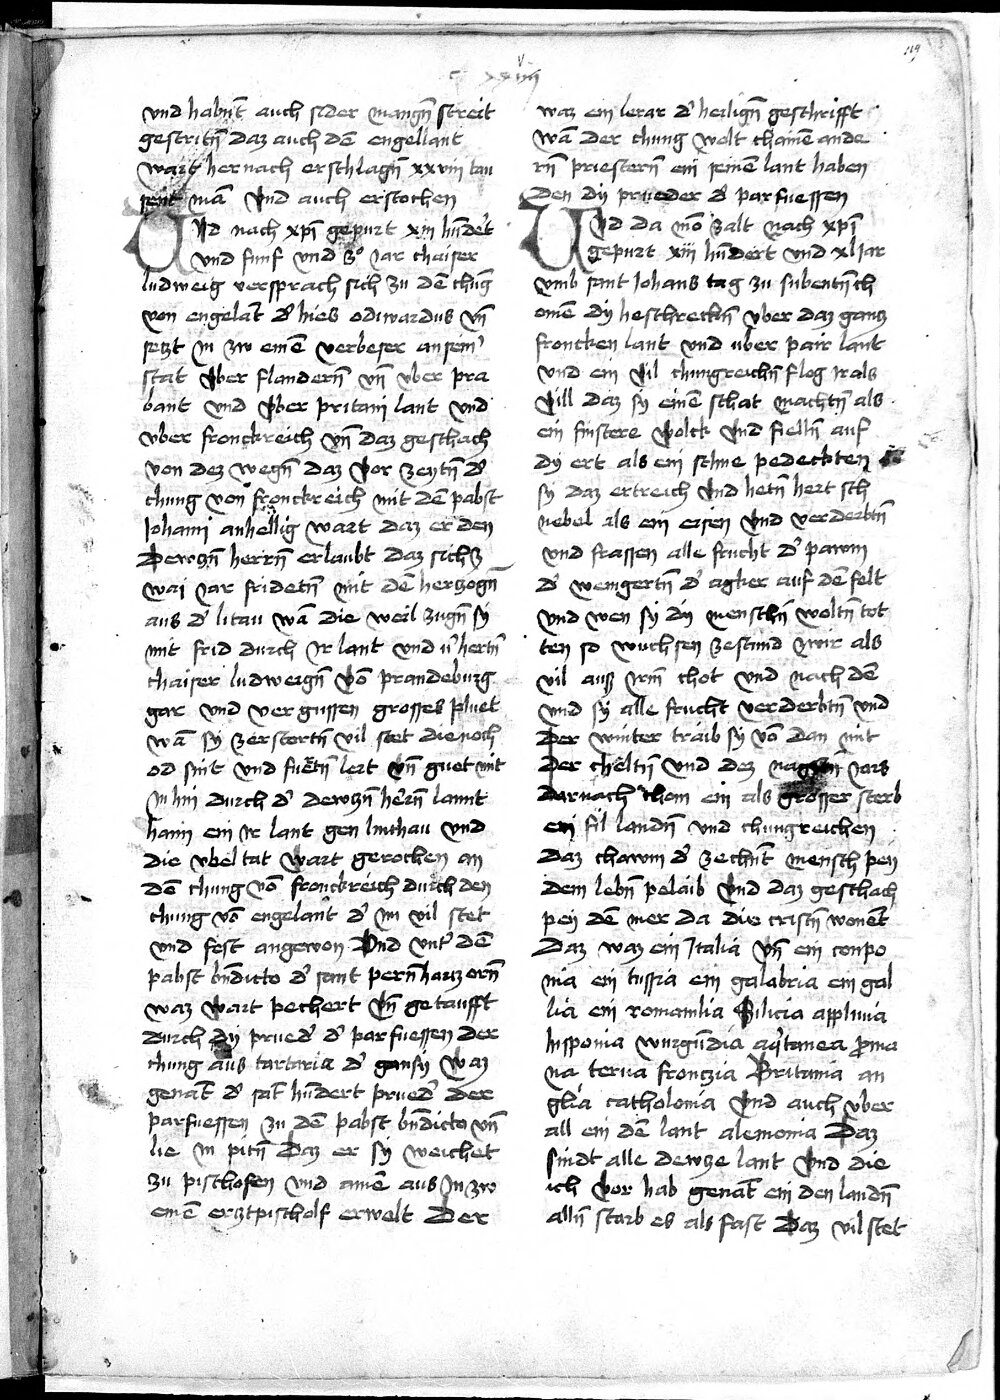 119
c xxiiij v
und habnt auch sider mangñ streit
gestritñ daz auch dē engellant
wart hernach erschlagñ xxviii tau
sent mā Vnd auch erstochen
Vnd nach xp̄i gepurt xiii hūdert
und funf und xxo Jar chaiser
ludweig versprach sich zu dē chūg
von engelāt d' hies oduwardus vn̄
setzt in zw einē verbeser an seinr
stat Vber flandern̄ vn̄ vber pra
bant und Vber pritani lant und
vber fronckreich vn̄ daz geschach
von dez wegn̄ daz Vor zeytn̄ d'
chung von fronckreich mit dē pabst
Johanni anhellig wart daz er den
Dewczn̄ herrn̄ erlaubt daz sich z
wai Jar fridetn̄ mit dē herczogn̄
aus d' litau wā die weil zugn̄ sy
mit frid durch Ir lant und
chaiser ludweign̄ Vō prandeburg
gar und vergussen grosses pluet
wā sy zerstortn̄ vil stet die noch
od sint und fuētn̄ lert vn̄ guet mit
In hin durch d' dewczn̄ hern̄ lannt
hann ein Ir lant gen linthau und
die vbel tat wart gerochen an
dē chung vō fronckreich durch den
chung vō engelant d' im vil stet
und fest angewon Vnd unt' dē
pabst bn̄dicto d' sant pern̄hartz orn̄
waz wart pechert Vn̄ getaufft
durch dy prued' d' parfuessen der
chung aus tartaria d' gansy waz
genāt d' sāt hūdert prued' der
parfuessen zu dē pabst bn̄dicto vn̄
lie in pitn̄ Daz er sy weichet
zu pischofen und ainē aus In zw
einē ercztpischolf erwelt Der
waz ein lerar d' heilign̄ geschrifft
wā der chung wolt chainē ande
rn̄ priestern̄ ein seinē lant haben
den dy prueder d' parfuessen
Vnd da mō zalt nach xp̄i
gepurt xiii hūdert und xl Jar
vmb sant Johans tag zu subentn̄ ch
omē dy heschreckn̄ vber daz gantz
froncken lant und uber pair lant
und ein Vil chungreichn̄ flog Ir als
Vill daz sy einē schat machtn̄ als
ein finstere Volck Vnd fielln̄ auf
dy ert als ein schne pedeckten
sy daz ertreich Vnd hetn̄ hert sch
nebel als ein eisen Vnd verderbtn̄
und frassen alle frucht d' pawm
d' weingertn̄ d' agker auf dē felt
und wen sy dy menschn̄ woltn̄ tot
ten so wuchsen zestund zwir als
vil auss Irm̄ thot und nach dē
und sy alle frucht verderbtn̄ und
der winter traib sy vō dan mit
der cheltn̄ und dez Jars
darnach chom ein als grosser sterb
ein fil landn̄ und chungreichen
daz chawm d' zechn̄t mensch pey
dem lebn̄ pelaib Vnd daz geschach
pey dē mer da die cristn̄ wonēt
Daz waz ein Italia vn̄ ein conpo
nia ein tussia ein galabria ein gal
lia ein romanilia Silicia applinia
hisponia wurgūdia aq̄tanea p̄ma
na terua fronczia Britania an
glia catholonia Vnd auch vber
all ein dē lant alemonia Daz
sindt alle dewcze lant Vnd die
ich Vor hab genāt ein den landn̄
alln̄ starb es als fast Daz vil stet